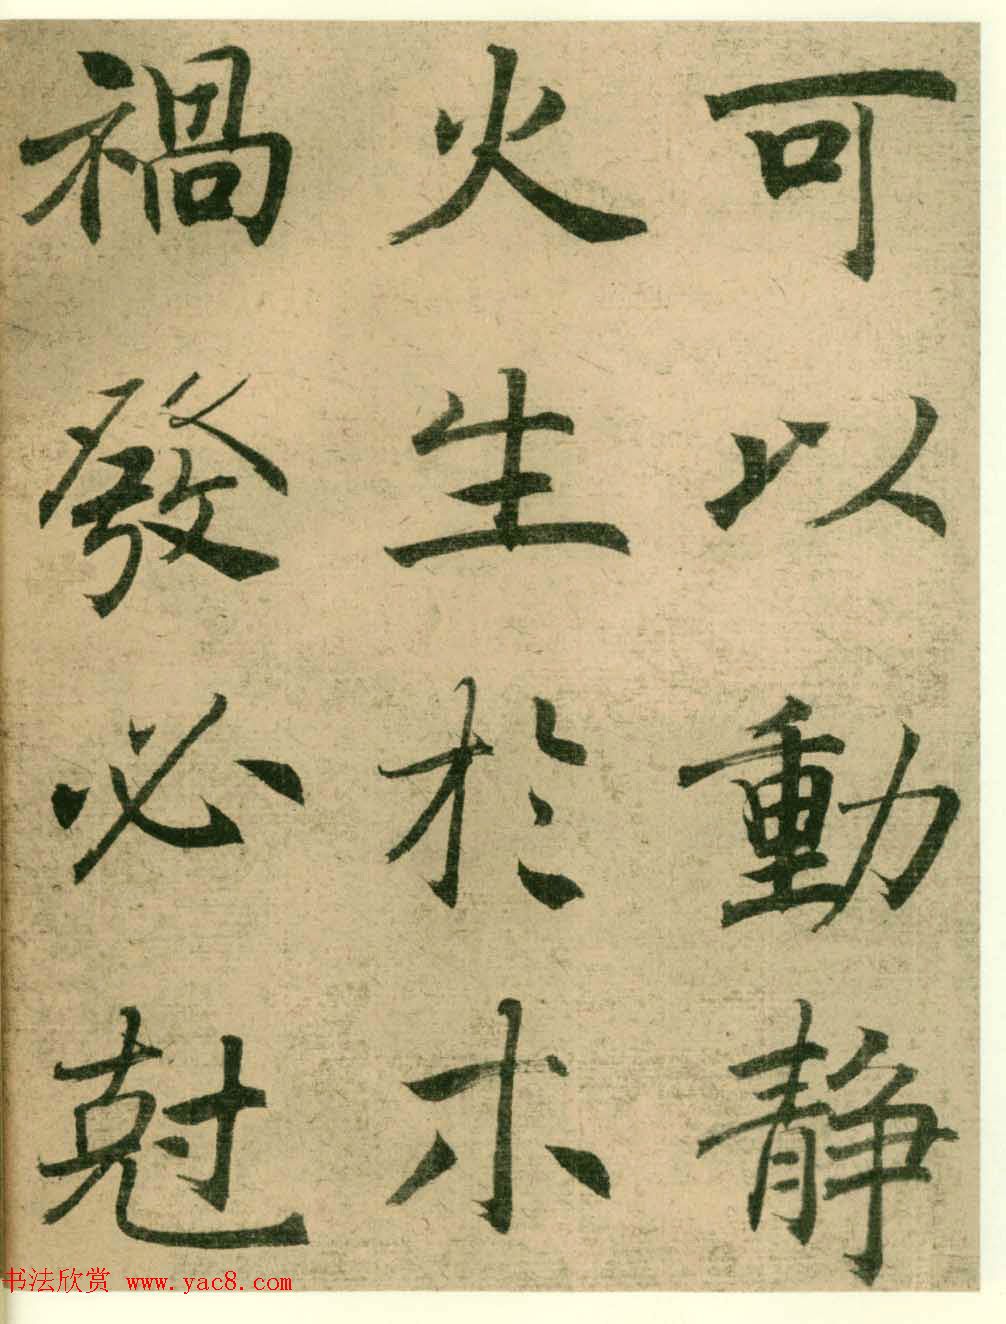 可以動静
火生於木
禍發必尅
书法欣赏 www.yac8.com